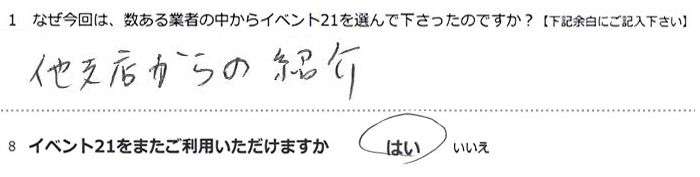 1 なぜ今回は、数ある業者の中からイベント21を選んで下さったのですか？【下記余白にご記入下さい】
他支店からの紹介
8 イベント21をまたご利用いただけますか はい いいえ